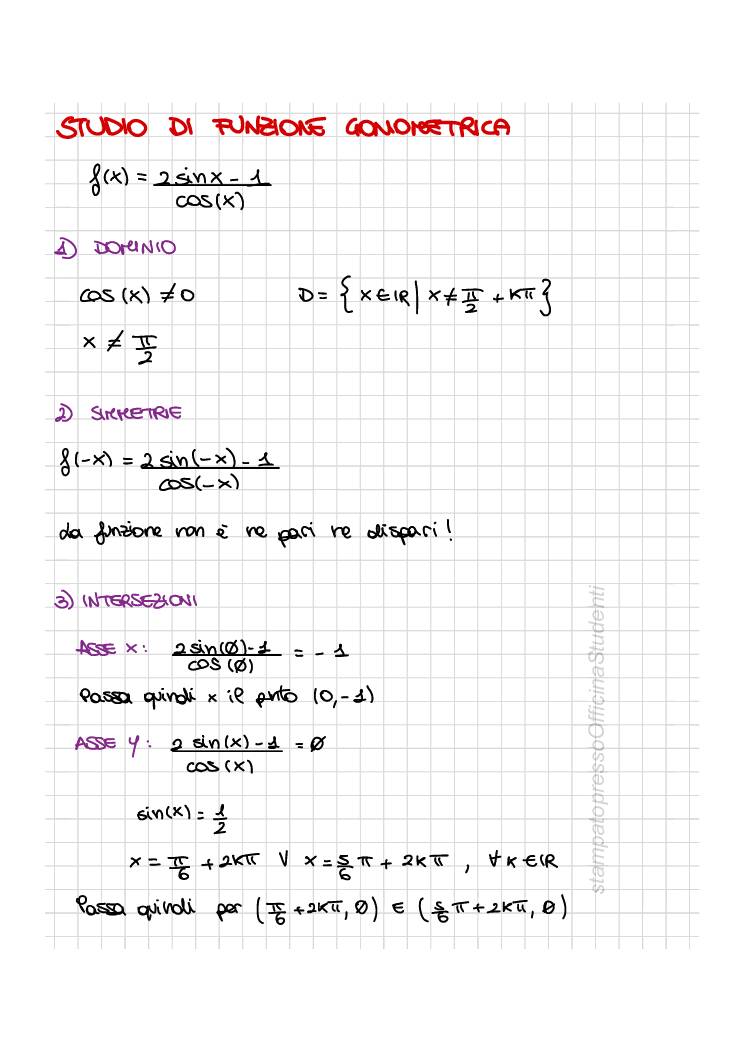 STUDIO DI FUNZIONE GONIOMETRICA
f(x) = (2 sinx - 1)/(cos(x))
1) DOMINIO
cos (x) ≠ 0 D = { x ∈ ℝ | x ≠ π/2 + kπ }
x ≠ π/2
2) SIMMETRIE
f(-x) = (2 sin(-x) - 1)/(cos(-x))
la funzione non è ne pari ne dispari!
3) INTERSEZIONI
ASSE x: (2 sin(0) - 1)/(cos (0)) = - 1
Passa quindi x il pnto (0, -1)
ASSE y: (2 sin(x) - 1)/(cos (x)) = 0
sin(x) = 1/2
x = π/6 + 2kπ ∨ x = 5/6 π + 2kπ , ∀ k ∈ ℝ
Passa quindi per (π/6 + 2kπ, 0) E (5/6 π + 2kπ, 0)
stampatopressoOfficinaStudenti